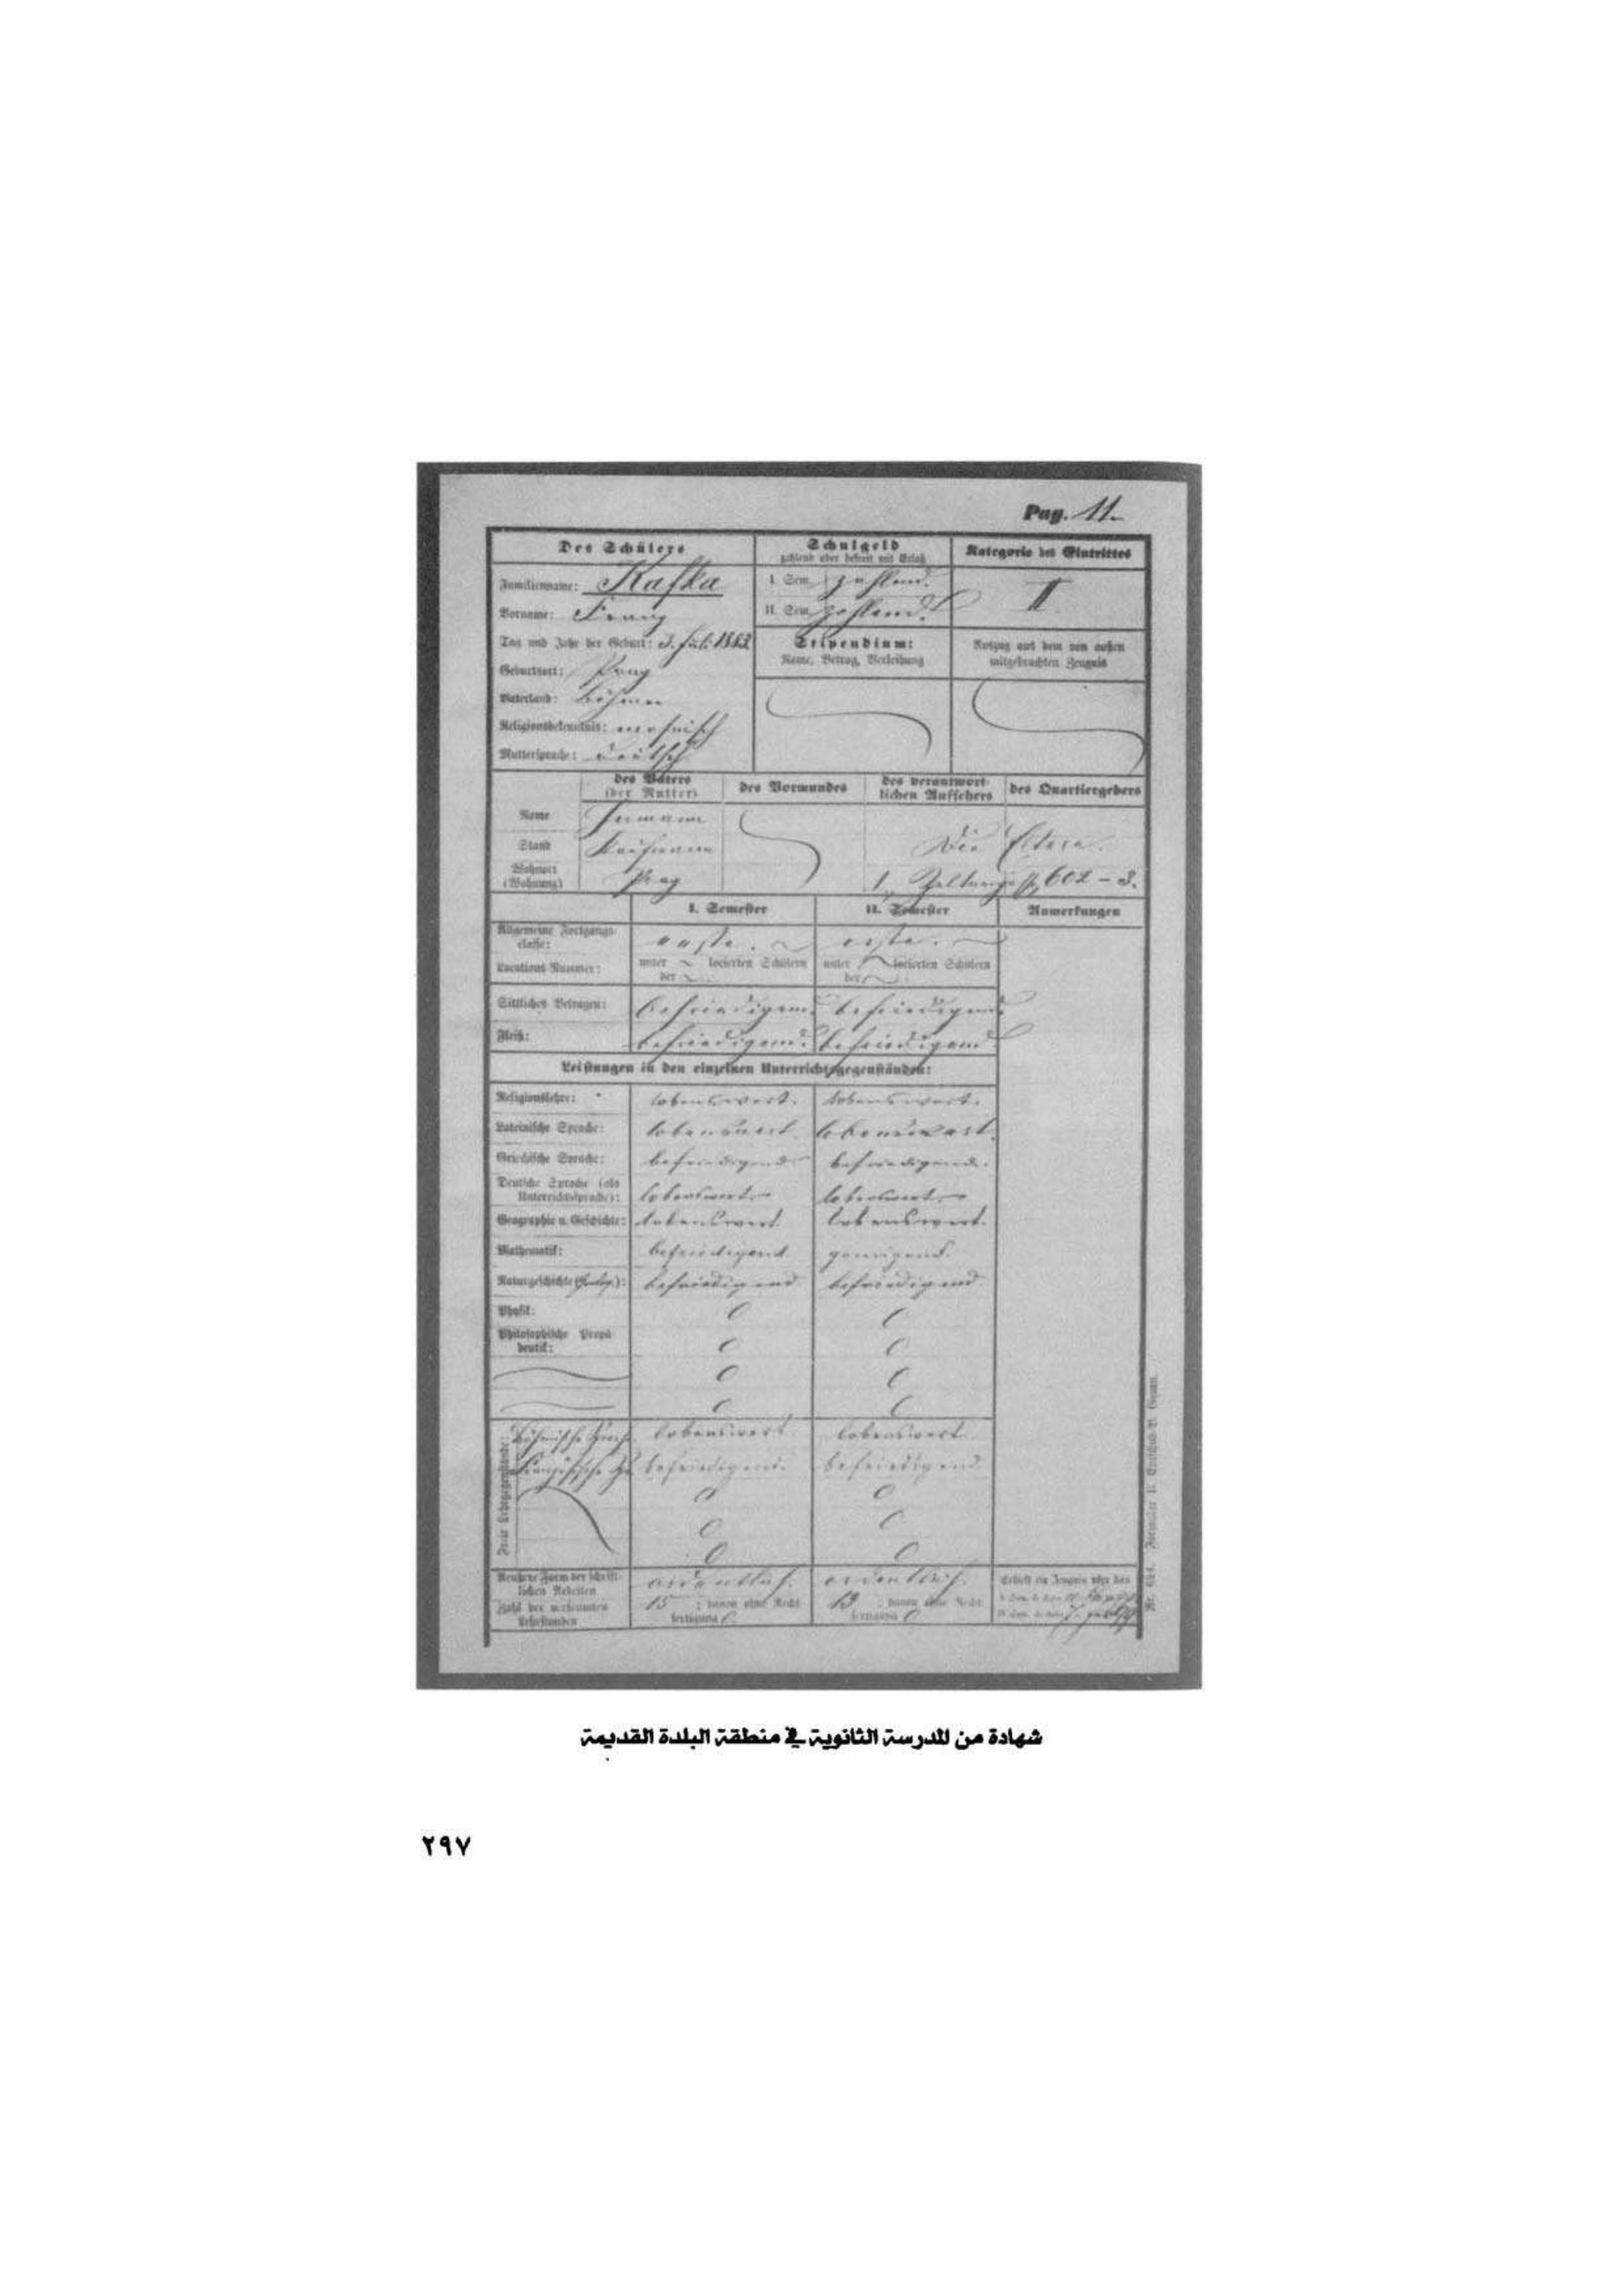 Pag. 11.
Des Schülers
Schulgeld
Kategorie des Eintrittes
zahlend oder befreit mit Erlaß
Familienname: Kafka
I. Sem. zahlend.
II
Vorname: Franz
II. Sem. zahlend.
Tag und Jahr der Geburt: 3. Juli 1883
Stipendium:
Auszug aus dem von außen
Name, Betrag, Verleihung
mitgebrachten Zeugnis
Geburtsort: Prag
Vaterland: Böhmen
Religionsbekenntnis: mosaisch
Muttersprache: deutsch
des Vaters
(der Mutter)
des Vormundes
des verantwort-
lichen Aufsehers
des Quartiergebers
Name Hermann
Stand Kaufmann
Die Eltern.
Wohnort
(Wohnung)
Prag
602 – 3.
I. Semester
II. Semester
Anmerkungen
Allgemeine Fortgangs-
classe:
erste.
erste.
Locations-Nummer:
unter locierten Schülern
unter locierten Schülern
der
der
Sittliches Betragen: befriedigend. befriedigend.
Fleiß: befriedigend. befriedigend.
Leistungen in den einzelnen Unterrichtsgegenständen:
Religionslehre: lobenswert. lobenswert.
Lateinische Sprache: lobenswert. lobenswert.
Griechische Sprache: befriedigend befriedigend.
Deutsche Sprache (als
Unterrichtssprache): lobenswert lobenswert.
Geographie u. Geschichte: lobenswert lobenswert.
Mathematik: befriedigend genügend.
Naturgeschichte befriedigend befriedigend
Physik: 0 0
Philosophische Propä-
deutik: 0 0
0 0
0 0
Freie Lehrgegenstände:
Böhmische Sprache lobenswert lobenswert.
Französische befriedigend. befriedigend
0 0
0 0
0 0
Aeußere Form der schrift-
lichen Arbeiten
ordentlich. ordentlich.
Zahl der versäumten
Lehrstunden
15 ; davon ohne Recht-
fertigung 0
13 ; davon ohne Recht-
fertigung 0
Erhielt ein Zeugnis über das
شهادة من المدرسة الثانوية في منطقة البلدة القديمة
٢٩٧